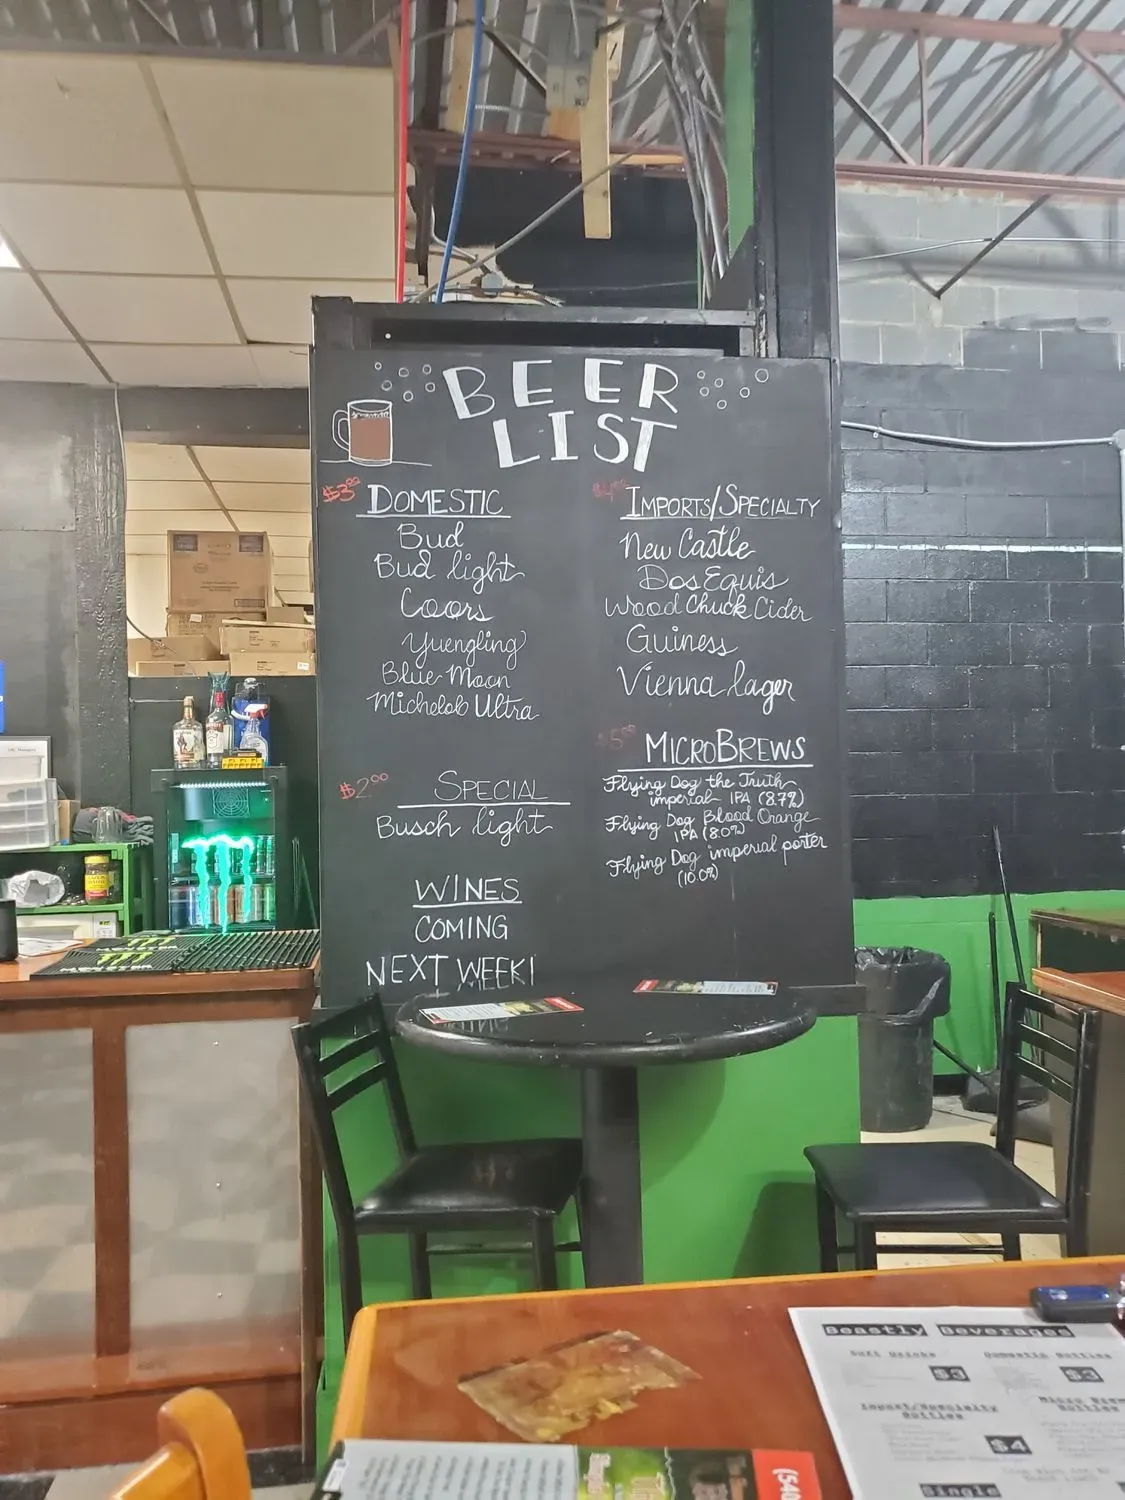 BEER
LIST
$3.00 DOMESTIC
Bud
Bud light
Coors
Yuengling
Blue Moon
Michelob Ultra
$2.00 SPECIAL
Busch light
WINES
COMING
NEXT WEEK!
$4.00 IMPORTS/SPECIALTY
New Castle
Dos Equis
Wood Chuck Cider
Guiness
Vienna lager
$5.00 MICROBREWS
Flying Dog the Truth
imperial IPA (8.7%)
Flying Dog Blood Orange
IPA (8.0%)
Flying Dog imperial porter
(10.0%)
MONSTER
MONSTER
Beastly Beverages
Soft Drinks
$3
Domestic Bottles
$3
Import/Specialty
Bottles
$4
Micro Brew
Bottles
Single
(540